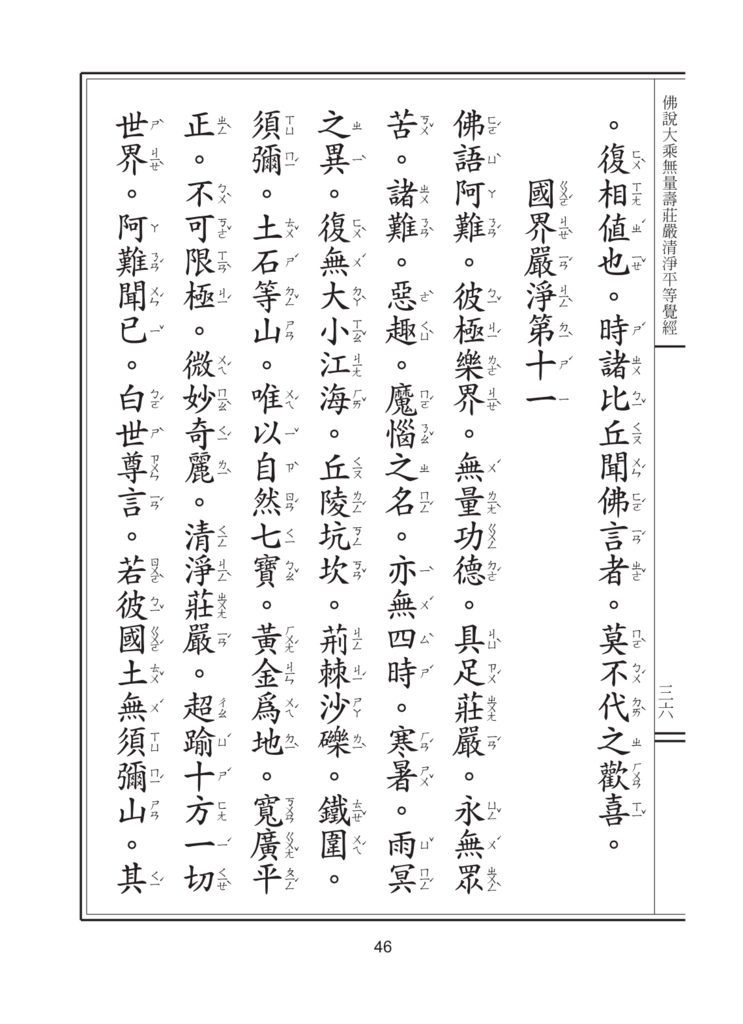 佛說大乘無量壽莊嚴清淨平等覺經
三六
。復相值也。時諸比丘聞佛言者。莫不代之歡喜。
國界嚴淨第十一
佛語阿難。彼極樂界。無量功德。具足莊嚴。永無眾
苦。諸難。惡趣。魔惱之名。亦無四時。寒暑。雨冥
之異。復無大小江海。丘陵坑坎。荊棘沙礫。鐵圍。
須彌。土石等山。唯以自然七寶。黃金為地。寬廣平
正。不可限極。微妙奇麗。清淨莊嚴。超踰十方一切
世界。阿難聞已。白世尊言。若彼國土無須彌山。其
46